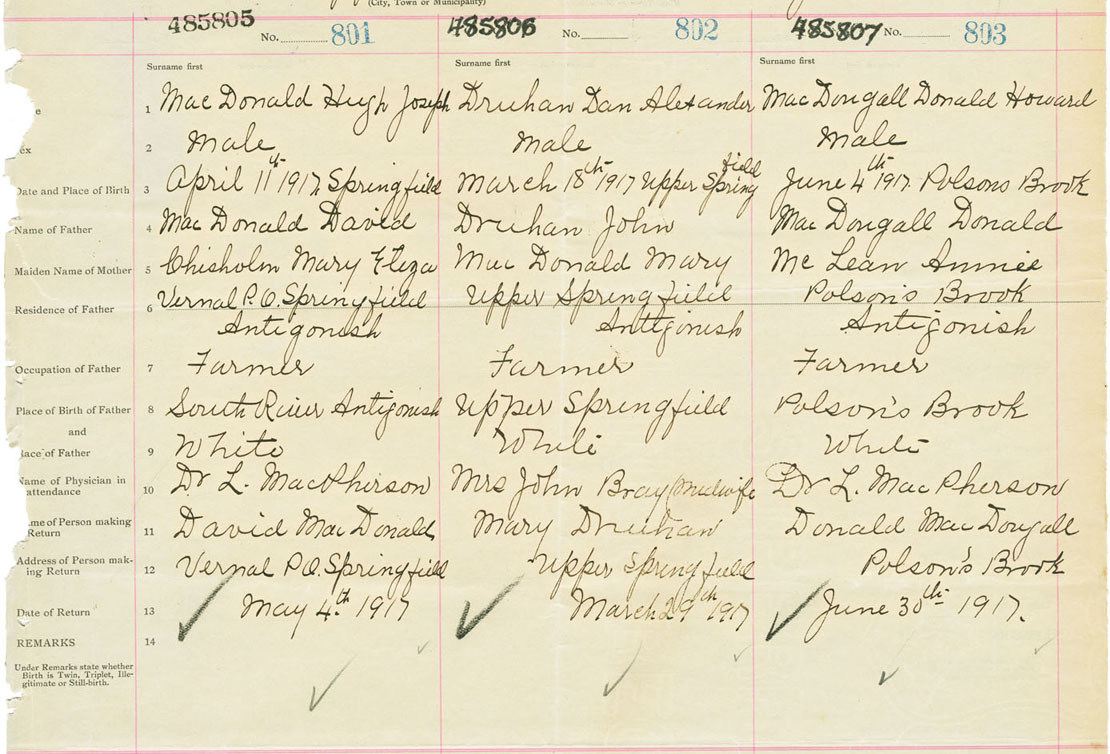 (City, Town or Municipality)
485805 No. 801 485806 No. 802 485807 No. 803
Surname first Surname first Surname first
e 1 MacDonald Hugh Joseph Druhan Dan Alexander MacDougall Donald Howard
ex 2 Male Male Male
Date and Place of Birth 3 April 11th 1917 Springfield March 18th 1917 Upper Springfield June 4th 1917 Polsons Brook
Name of Father 4 MacDonald David Druhan John MacDougall Donald
Maiden Name of Mother 5 Chisholm Mary Eliza MacDonald Mary McLean Annie
Residence of Father 6 Vernal P.O. Springfield Upper Springfield Polson's Brook
Antigonish Antigonish Antigonish
Occupation of Father 7 Farmer Farmer Farmer
Place of Birth of Father 8 South River Antigonish Upper Springfield Polson's Brook
and
Race of Father 9 White White White
Name of Physician in
attendance 10 Dr L. MacPherson Mrs John Bray Midwife Dr L. MacPherson
me of Person making
Return 11 David MacDonald Mary Druhan Donald MacDougall
Address of Person mak-
ing Return 12 Vernal P.O. Springfield Upper Springfield Polson's Brook
Date of Return 13 May 4th 1917 March 29th 1917 June 30th 1917.
REMARKS 14
Under Remarks state whether
Birth is Twin, Triplet, Ille-
gitimate or Still-birth.